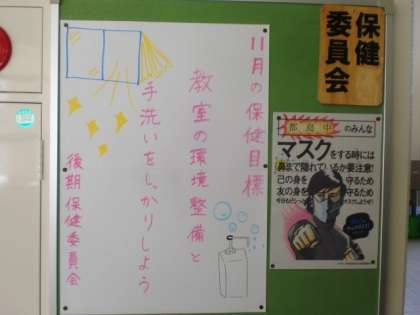 保健
委員会
11月の保健目標
教室の環境整備と
手洗いをしっかりしよう
後期保健委員会
都島中のみんな
マスクをする時には
鼻まで隠れているか要注意!
己の身を守るため
友の身を守るため